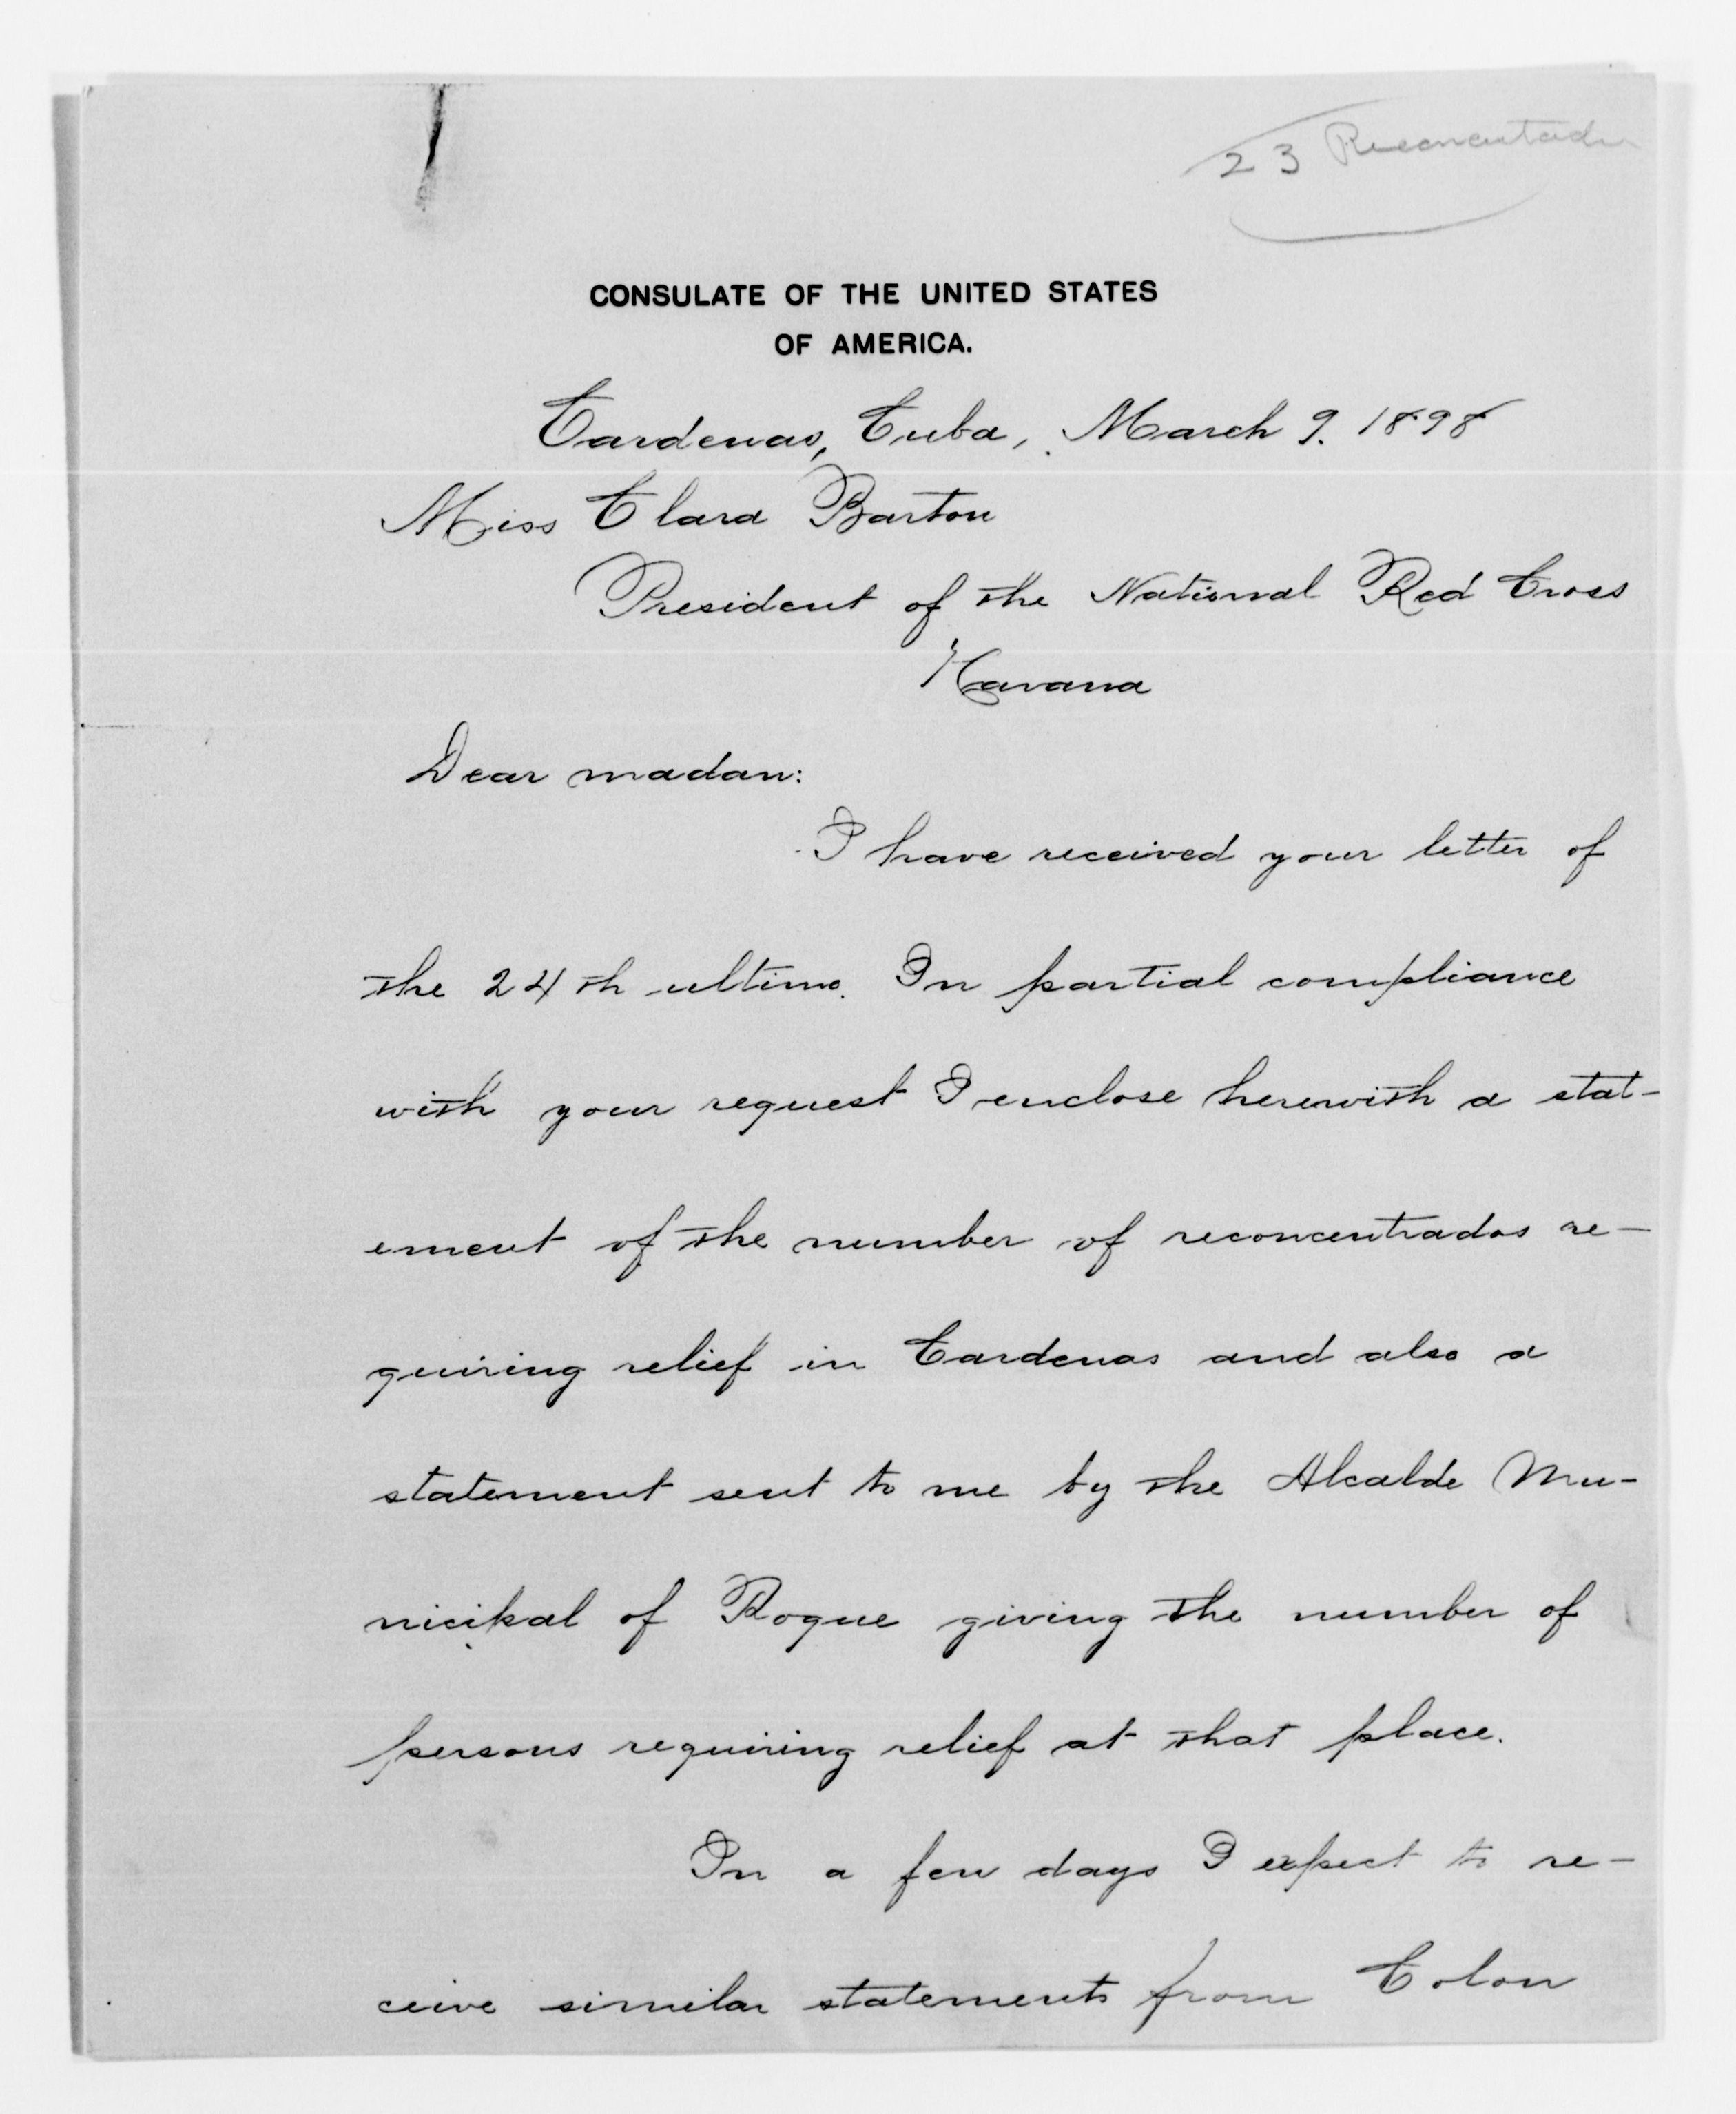 23
CONSULATE OF THE UNITED STATES
OF AMERICA.
Cardenas, Cuba, March 9. 1898
Miss Clara Barton
President of the National Red Cross
Havana
Dear madan:
I have received your letter of
the 24th ultimo. In partial compliance
with your request I enclose herewith a stat-
ement of the number of reconcentrados re-
quiring relief in Cardenas and also a
statement sent to me by the Alcalde Mu-
nicipal of Roque giving the number of
persons requiring relief at that place.
In a few days I expect to re-
ceive similar statements from Colon